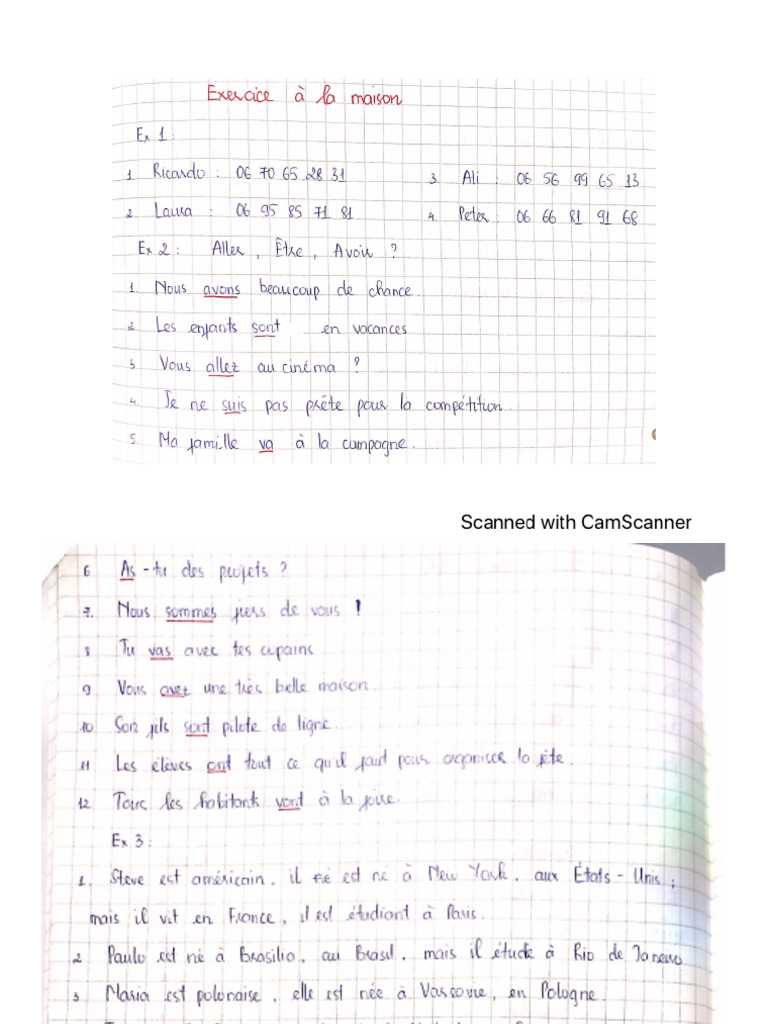 Exercice à la maison
Ex 1 :
1 Ricardo : 06 70 65 28 31
3. Ali : 06 56 99 65 13
2 Laura : 06 95 85 71 81
4. Peter : 06 66 81 91 68
Ex 2 : Aller, Être, Avoir ?
1. Nous avons beaucoup de chance.
2. Les enfants sont en vacances
3 Vous allez au cinéma ?
4. Je ne suis pas prête pour la compétition.
5. Ma famille va à la campagne.
Scanned with CamScanner
6 As-tu des projets ?
7. Nous sommes fiers de vous !
8 Tu vas avec tes copains
9 Vous avez une très belle maison.
10 Son fils sont pilote de ligne.
11 Les élèves ont tout ce qu'il faut pour organiser la fête.
12. Tous les habitants vont à la foire.
Ex 3 :
1. Steve est américain, il est né à New York, aux États-Unis ;
mais il vit en France, il est étudiant à Paris.
2 Paulo est né à Brasilia, au Brasil, mais il étude à Rio de Janeiro
3 Maria est polonaise, elle est née à Varsovie, en Pologne.